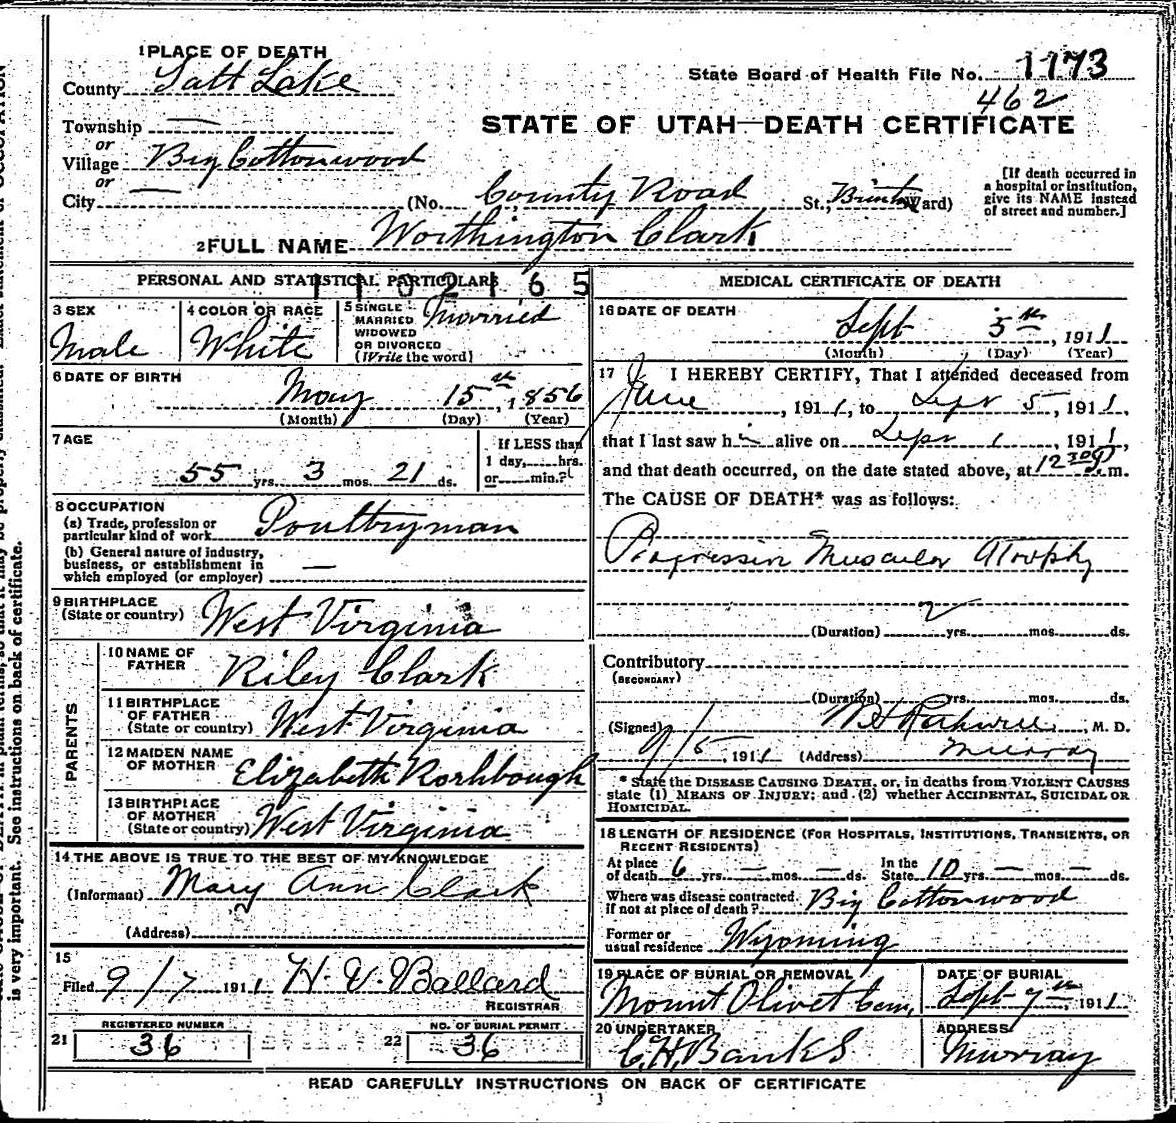 1 PLACE OF DEATH
County Salt Lake
State Board of Health File No. 1173
462
Township —
or
Village Big Cottonwood
or
City —
STATE OF UTAH—DEATH CERTIFICATE
(No. County Road St., Ward)
[If death occurred in
a hospital or institution,
give its NAME instead
of street and number.]
2 FULL NAME Worthington Clark
PERSONAL AND STATISTICAL PARTICULARS
1102165
3 SEX
Male
4 COLOR OR RACE
White
5 SINGLE
MARRIED
WIDOWED
OR DIVORCED
(Write the word)
Married
6 DATE OF BIRTH
May 15th, 1856
(Month) (Day) (Year)
7 AGE
55 yrs. 3 mos. 21 ds.
If LESS than
1 day,......hrs.
or......min.?
8 OCCUPATION
(a) Trade, profession or
particular kind of work Poultryman
(b) General nature of industry,
business, or establishment in
which employed (or employer) —
9 BIRTHPLACE
(State or country) West Virginia
PARENTS
10 NAME OF
FATHER Riley Clark
11 BIRTHPLACE
OF FATHER
(State or country) West Virginia
12 MAIDEN NAME
OF MOTHER Elizabeth Rorhbough
13 BIRTHPLACE
OF MOTHER
(State or country) West Virginia
14 THE ABOVE IS TRUE TO THE BEST OF MY KNOWLEDGE
(Informant) Mary Ann Clark
(Address)
15
Filed 9/7 1911 H. V. Ballard
REGISTRAR
REGISTERED NUMBER
21 36
NO. OF BURIAL PERMIT
22 36
MEDICAL CERTIFICATE OF DEATH
16 DATE OF DEATH
Sept 5th, 1911
(Month) (Day) (Year)
17 I HEREBY CERTIFY, That I attended deceased from
June, 1911, to Sept 5, 1911,
that I last saw hi alive on Sept 1, 1911,
and that death occurred, on the date stated above, at 12 30 m.
The CAUSE OF DEATH* was as follows:
Progressive Muscular Atrophy
(Duration) 2 yrs. mos. ds.
Contributory
(SECONDARY)
(Duration) yrs. mos. ds.
(Signed) Rothwell, M. D.
9/5, 1911 (Address) Murray
* State the DISEASE CAUSING DEATH, or, in deaths from VIOLENT CAUSES
state (1) MEANS OF INJURY; and (2) whether ACCIDENTAL, SUICIDAL OR
HOMICIDAL.
18 LENGTH OF RESIDENCE (FOR HOSPITALS, INSTITUTIONS, TRANSIENTS, OR
RECENT RESIDENTS)
At place
of death 6 yrs. — mos. — ds.
In the
State 10 yrs. — mos. — ds.
Where was disease contracted,
if not at place of death? Big Cottonwood
Former or
usual residence Wyoming
19 PLACE OF BURIAL OR REMOVAL
Mount Olivet Cem,
DATE OF BURIAL
Sept 7th, 1911
20 UNDERTAKER
C. H. Banks
ADDRESS
Murray
READ CAREFULLY INSTRUCTIONS ON BACK OF CERTIFICATE
is very important. See instructions on back of certificate.